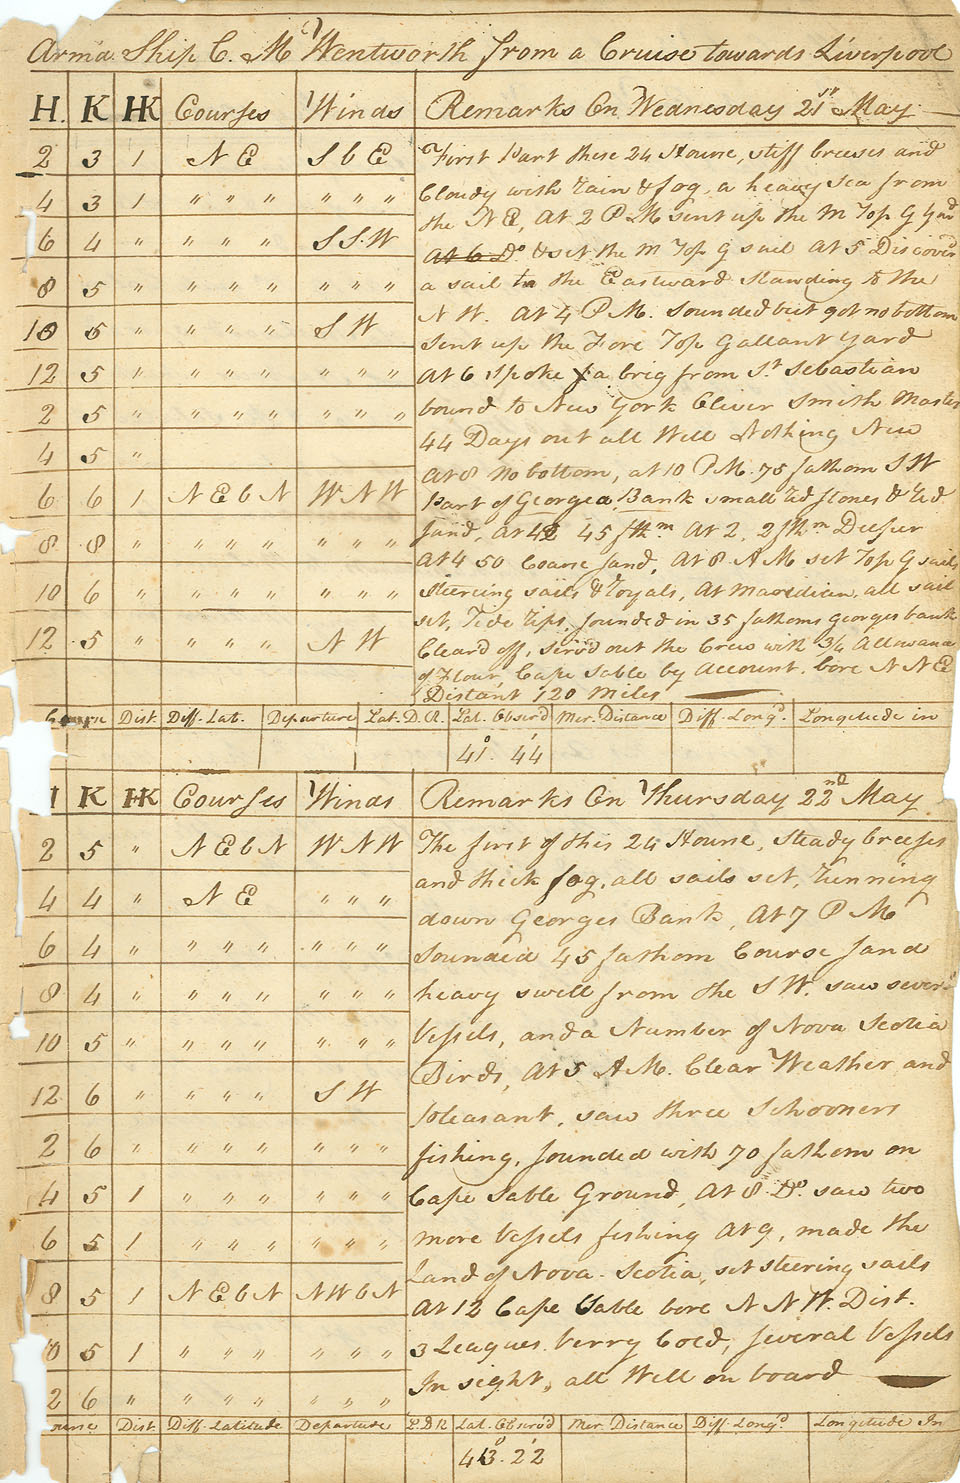 Arm'd Ship C. M. Wentworth from a Cruise towards Liverpool
H. K HK Courses Winds Remarks On Wednesday 21st May
2 3 1 N E S b E
4 3 1 " " " " " "
6 4 " " " " S S. W
8 5 " " " " " " "
10 5 " " " " S W
12 5 " " " " " " "
2 5 " " " " " " "
4 5 "
6 6 1 N E b N W N W
8 8 " " " " " " "
10 6 " " " " " " "
12 5 " " " N W
First Part these 24 Hours, stiff breeses and
Cloudy with rain & fog, a heavy sea from
the N E, At 2 P M sent up the M Top G Yard
At 6 Do & set the M Top G sail At 5 Discover'd
a sail to the Eastward standing to the
N W. At 4 P M. sounded but got no bottom
sent up the Fore Top Gallant yard
At 6 spoke a brig from St Sebastian
bound to New York Oliver Smith Master
44 Days out all Well Nothing New
At 8 No bottom, at 10 P M. 75 fathom S W
Part of Georgea Bank small red stones & red
sand, at 12 45 fthm At 2, 2 fthm Deeper
At 4 50 Coarse sand, At 8 A M set Top G sails
steering sails & royals, At Maridian, all sail
set, Tide rips, sounded in 35 fathoms Georges bank
Cleard off, serv'd out the Crew with 3/4 Allowance
of Flour, Cape Sable by Account. bore N N E
Distant 120 miles
Course Dist. Diff. Lat. Departure Lat. D. R. Lat. Obser'd Mer. Distance Diff. Longd. Longitude in
41° 44
H K HK Courses Winds Remarks On Thursday 22nd May
2 5 " N E b N W N W
4 4 " N E " " "
6 4 " " " " " " "
8 4 " " " " " " "
10 5 " " " " " " "
12 6 " " " " S W
2 6 " " " " " " "
4 5 1 " " " " " "
6 5 1 " " " " " "
8 5 1 N E b N N W b N
10 5 1 " " " " " "
12 6 " " " " " " "
The first of this 24 Hours, steady breeses
and thick fog, all sails set, running
down Georges Bank, At 7 P M
sounded 45 fathom Course sand
heavy swell from the S W. saw sever'l
Vessels, and a Number of Nova Scotia
Birds, At 5 A M. Clear Weather and
pleasant, saw three Schooners
fishing, sounded with 70 fathom on
Cape Sable Ground, At 8 Do. saw two
more Vessels fishing At 9, made the
Land of Nova Scotia, set steering sails
At 12 Cape Sable bore N N W. Dist.
3 Leagues. verry Cold, several Vessels
In sight, all Well on board
Course Dist. Diff. Latitude Departude L D R Lat. Obser'd Mer. Distance Diff. Longd. Longitude In
43° 22'